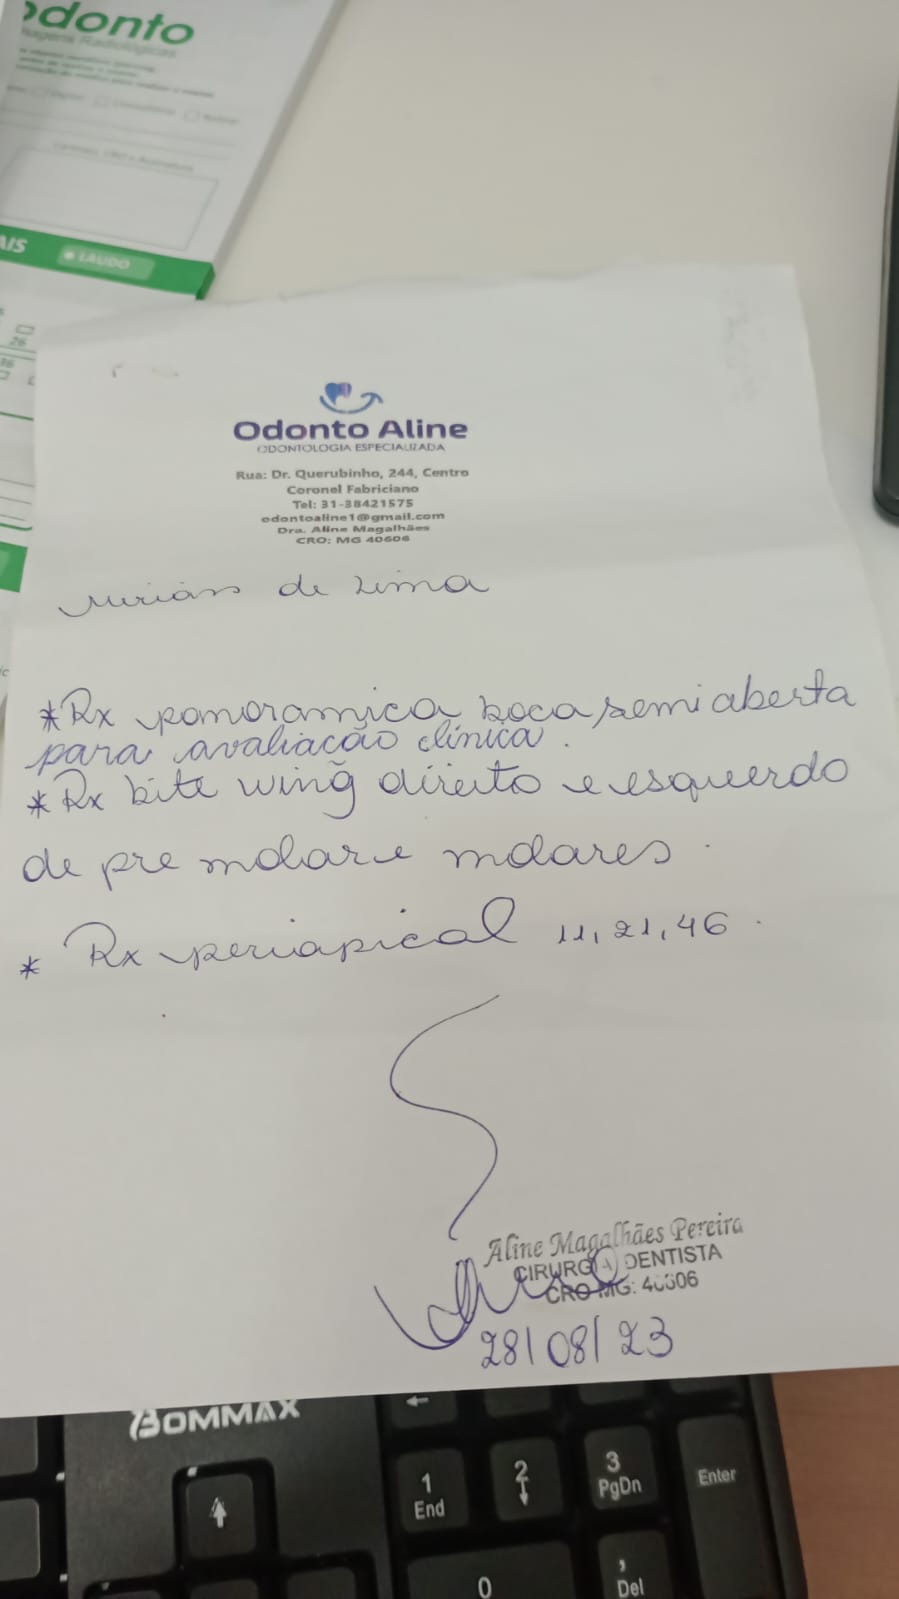 odonto
Imagens Radiológicas
AIS
LAUDO
26
36
Odonto Aline
ODONTOLOGIA ESPECIALIZADA
Rua: Dr. Querubinho, 244, Centro
Coronel Fabriciano
Tel: 31-38421575
odontoaline1@gmail.com
Dra. Aline Magalhães
CRO: MG 40606
Mirian de Lima
*Rx panoramica boca semi aberta
para avaliação clínica.
*Rx bite wing direito e esquerdo
de pre molar e molares.
* Rx periapical 11, 21, 46.
Aline Magalhães Pereira
CIRURGIÃ DENTISTA
CRO MG: 40606
28/08/23
BOMMAX
1
End
2
3
PgDn
Enter
0
,
Del